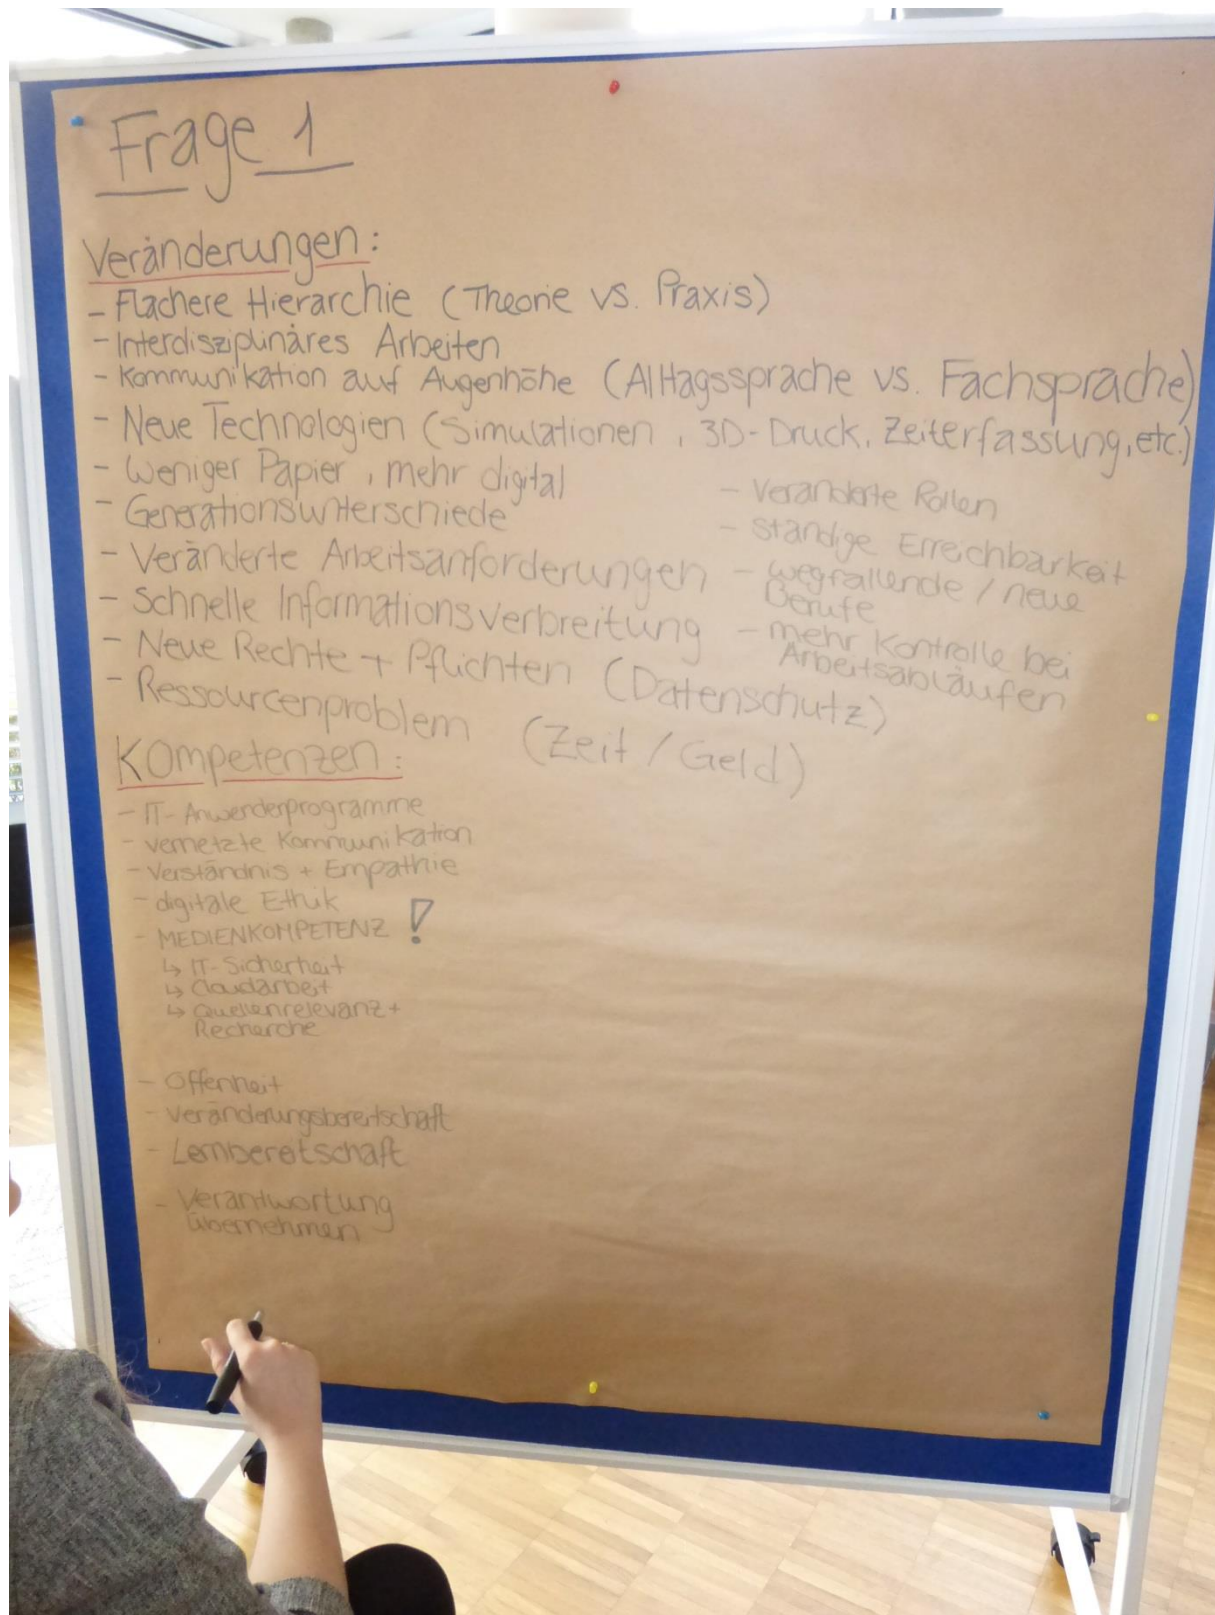 Frage 1
Veränderungen:
- Flachere Hierarchie (Theorie vs. Praxis)
- Interdisziplinäres Arbeiten
- Kommunikation auf Augenhöhe (Alltagssprache vs. Fachsprache)
- Neue Technologien (Simulationen, 3D-Druck, Zeiterfassung, etc.)
- weniger Papier, mehr digital
- Generationsunterschiede
- Veränderte Arbeitsanforderungen
- Schnelle Informationsverbreitung
- Neue Rechte + Pflichten (Datenschutz)
- Ressourcenproblem (Zeit / Geld)
- Veränderte Rollen
- ständige Erreichbarkeit
- wegfallende / neue
Berufe
- mehr Kontrolle bei
Arbeitsabläufen
Kompetenzen:
- IT-Anwenderprogramme
- vernetzte Kommunikation
- Verständnis + Empathie
- digitale Ethik
- MEDIENKOMPETENZ !
↳ IT-Sicherheit
↳ Cloudarbeit
↳ Quellenrelevanz +
Recherche
- Offenheit
- Veränderungsbereitschaft
- Lernbereitschaft
- Verantwortung
übernehmen